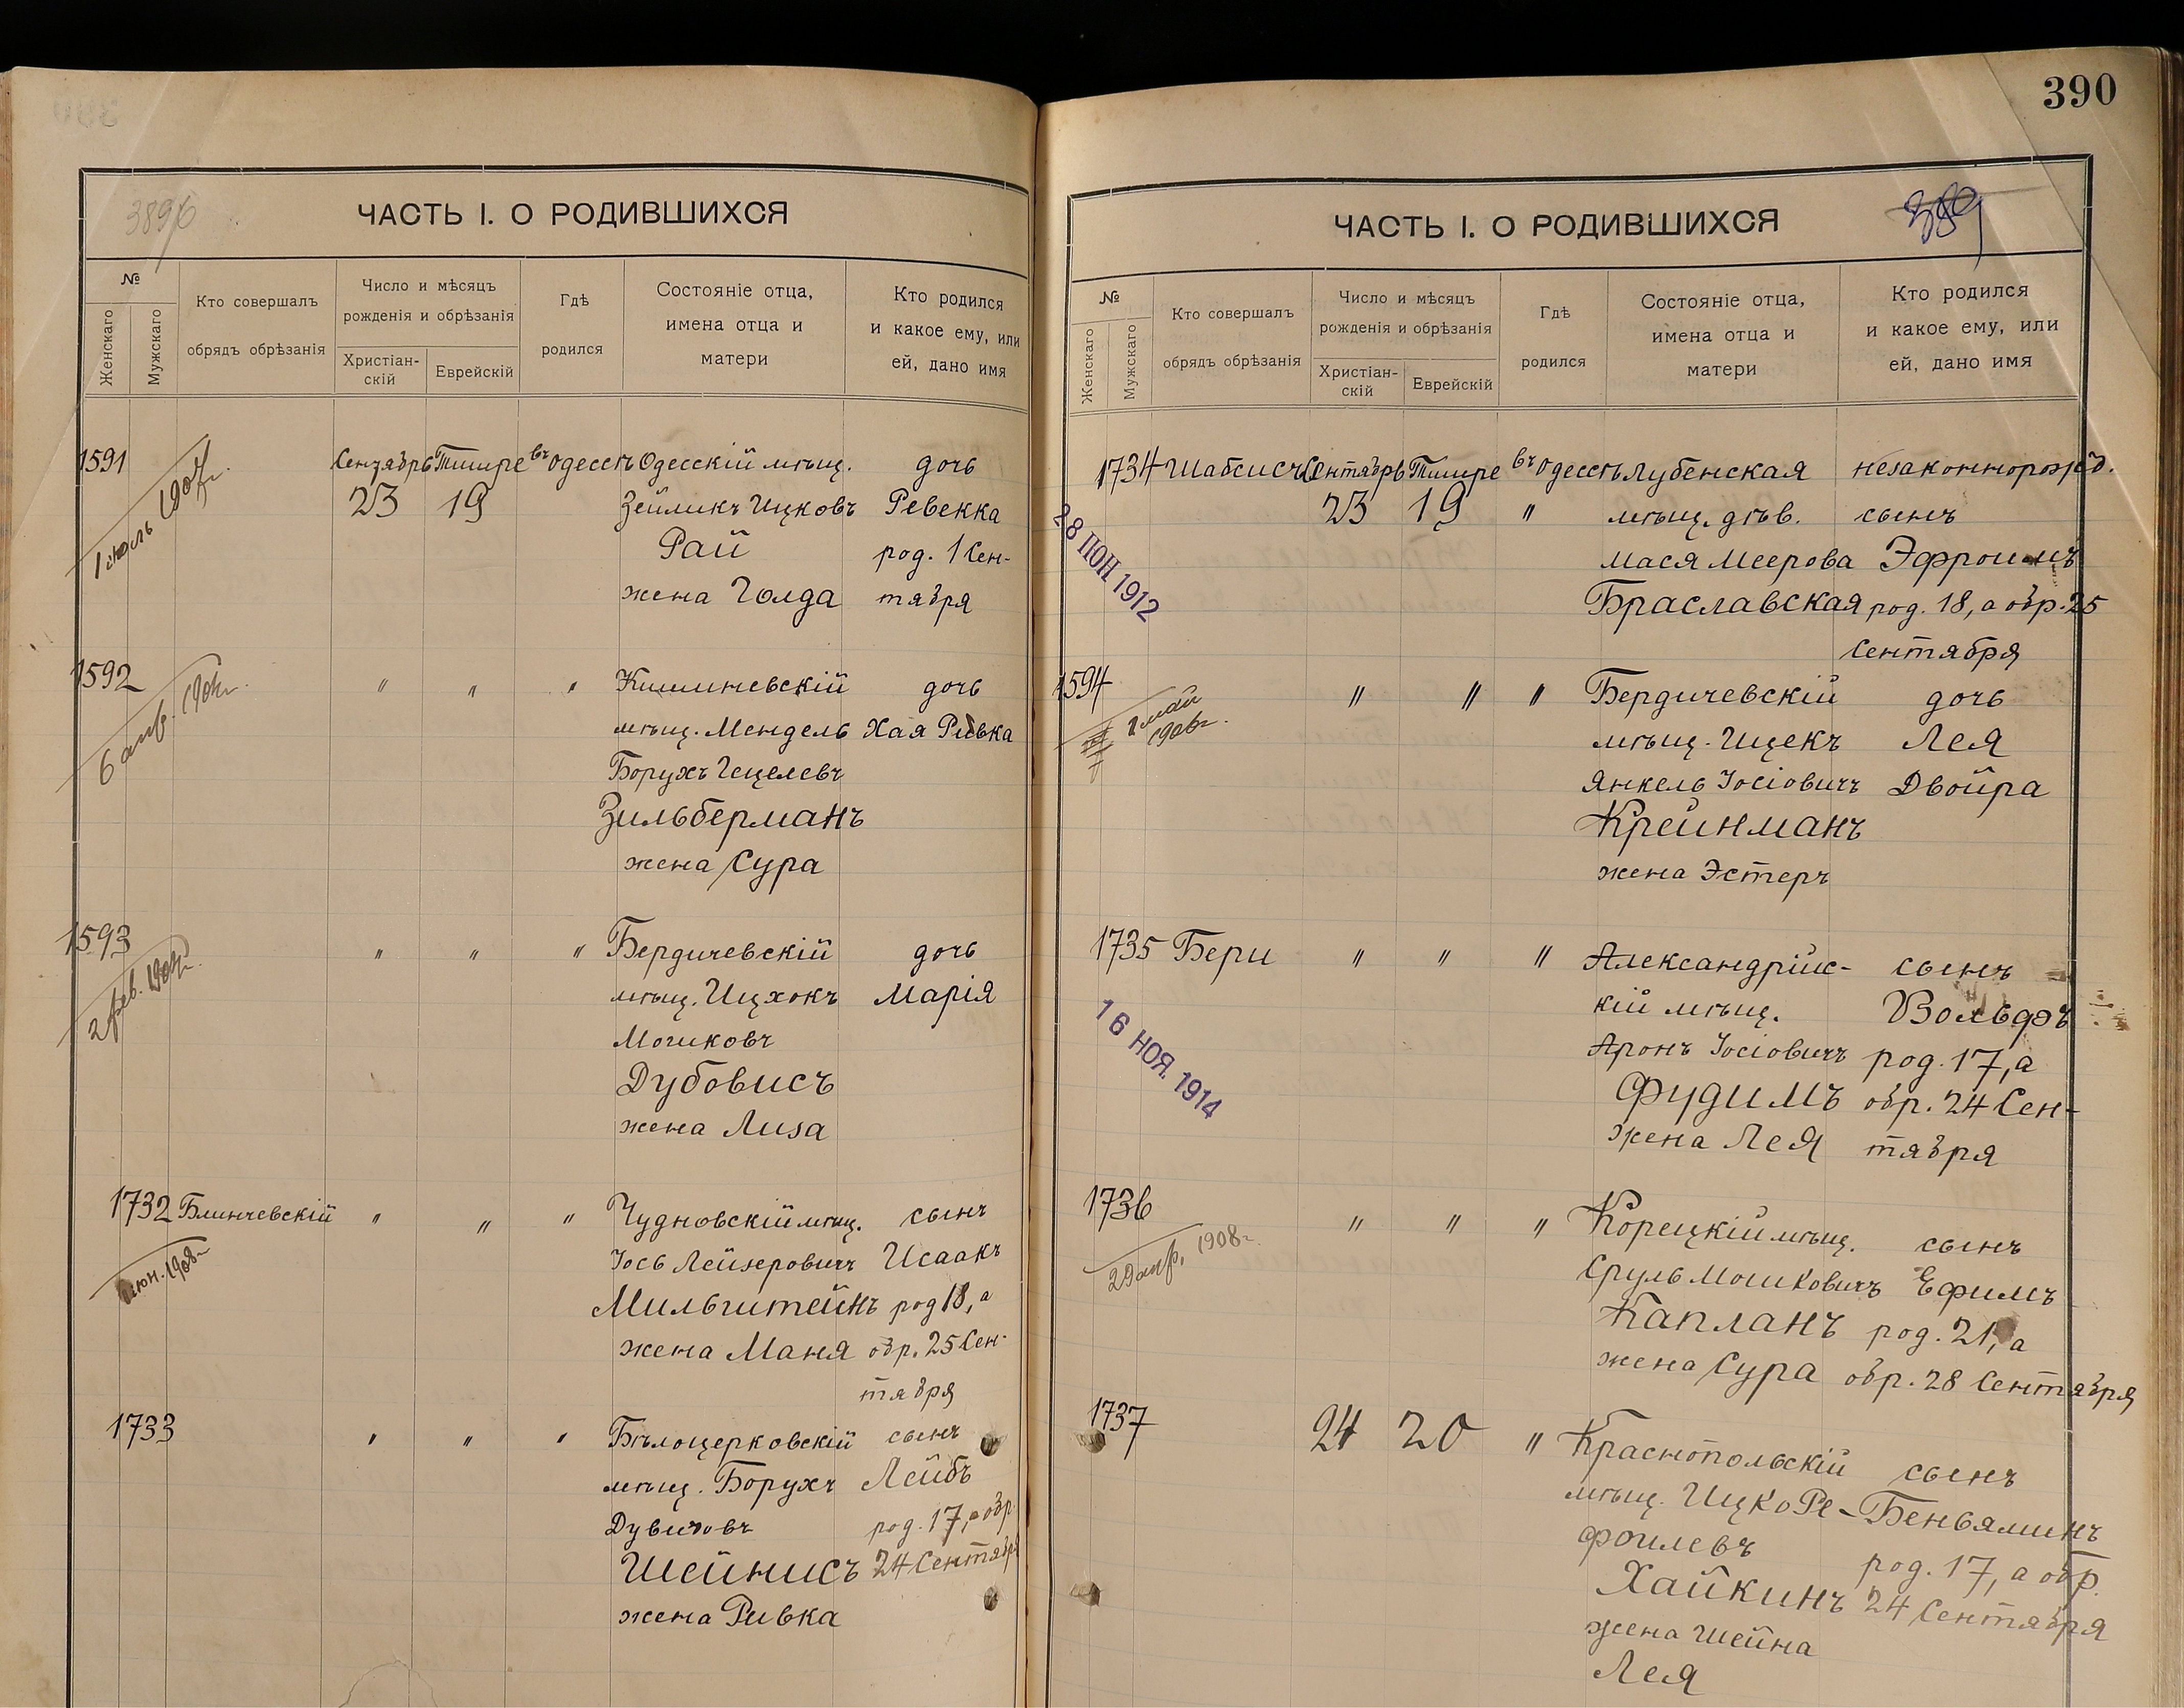 390
3896
ЧАСТЬ I. О РОДИВШИХСЯ
№
Женскаго
Мужскаго
Кто совершалъ
обрядъ обрѣзанія
Число и мѣсяцъ
рожденія и обрѣзанія
Христіан-
скій
Еврейскій
Гдѣ
родился
Состояніе отца,
имена отца и
матери
Кто родился
и какое ему, или
ей, дано имя
1591 Сентябрь Тишре въ Одессѣ Одесскій мѣщ. дочь
23 19 Зейликъ Ицковъ Ревекка
Рай род. 1 Сен-
жена Голда тября
1 іюль 1907г.
1592 " " " Кишиневскій дочь
мѣщ. Мендель Хая Ривка
Борухъ Гецелевъ
Зильберманъ
жена Сура
6 апр. 190
1593 " " " Бердичевскій дочь
мѣщ. Ицхокъ Марія
Мошковъ
Дубовисъ
жена Лиза
2 фев. 190
1732 Блинчевскій " " " Чудновскій мѣщ. сынъ
Іось Лейзеровичъ Исаакъ
Мильштейнъ род 18, а
жена Маня обр. 25 Сен-
тября
іюн. 1908г
1733 " " " Бѣлоцерковскій сынъ
мѣщ. Борухъ Лейбъ
Дувидовъ род. 17, а обр.
Шейнисъ 24 Сентября
жена Ривка
ЧАСТЬ I. О РОДИВШИХСЯ
389
№
Женскаго
Мужскаго
Кто совершалъ
обрядъ обрѣзанія
Число и мѣсяцъ
рожденія и обрѣзанія
Христіан-
скій
Еврейскій
Гдѣ
родился
Состояніе отца,
имена отца и
матери
Кто родился
и какое ему, или
ей, дано имя
1734 Шабсисъ Сентябрь Тишре въ Одессѣ Лубенская незаконнорожд.
23 19 " мѣщ. дѣв. сынъ
Мася Меерова Эфроимъ
Браславская род. 18, а обр. 25
Сентября
28 1912
1594 " " " Бердичевскій дочь
мѣщ. Ицекъ Лея
Янкель Іосіовичъ Двойра
Крейнманъ
жена Эстеръ
май
1906г.
1735 Бери " " " Александрійс- сынъ
кій мѣщ. Вольфъ
Аронъ Іосіовичъ род. 17, а
Фудимъ обр. 24 Сен-
жена Лея тября
16 НОЯ. 1914
1736 " " " Корецкій мѣщ. сынъ
Сруль Мошковичъ Ефимъ
Капланъ род. 21, а
жена Сура обр. 28 Сентября
29 апр. 1908г.
1737 24 20 " Краснопольскій сынъ
мѣщ. Ицко Ре- Беньяминъ
фоилевъ род. 17, а обр.
Хайкинъ 24 Сентября
жена Шейна
Лея